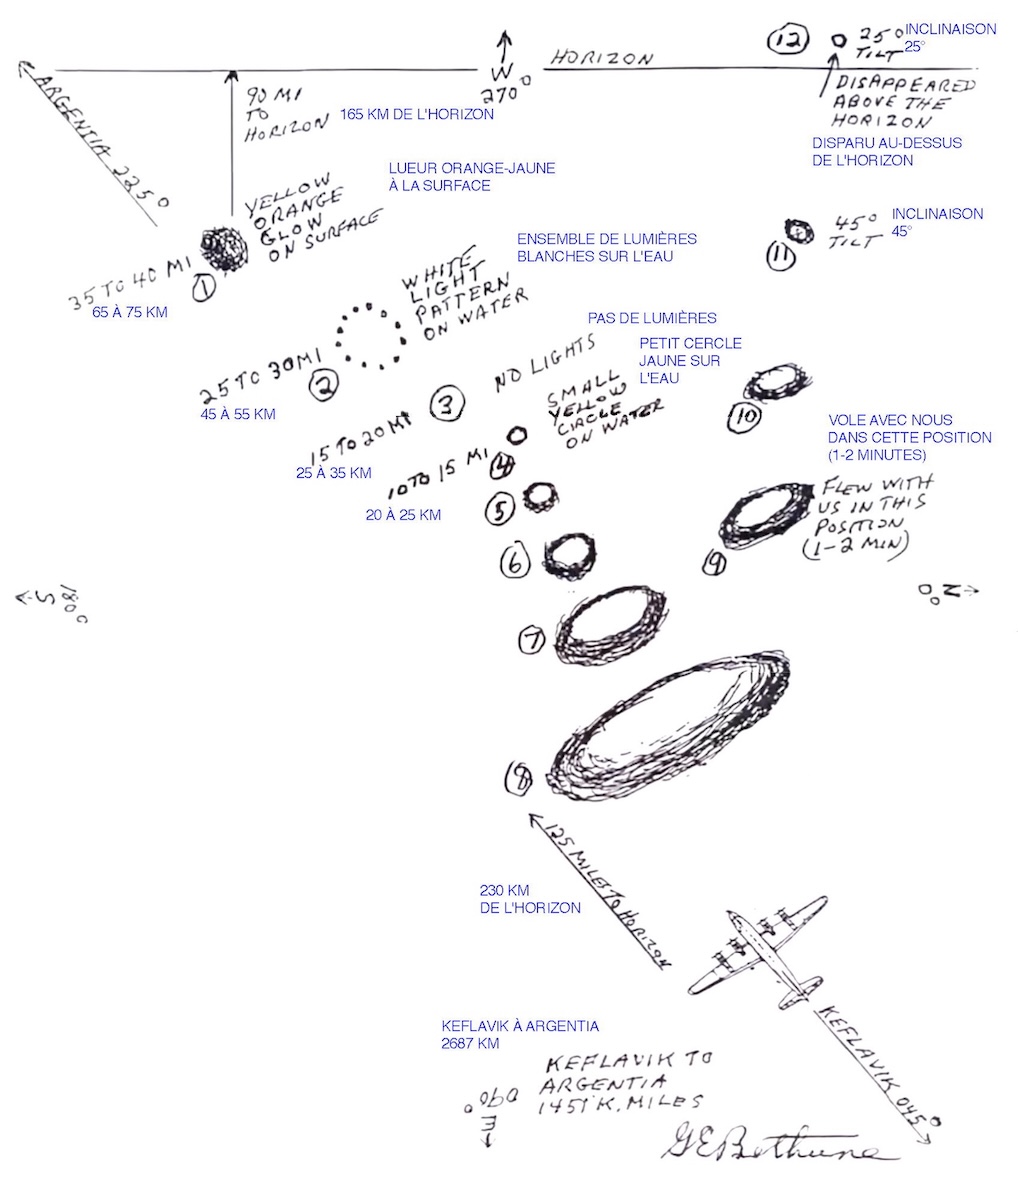 12
25° TILT
INCLINAISON
25°
HORIZON
W
270°
ARGENTIA 225°
90 MI
TO
HORIZON
165 KM DE L'HORIZON
DISAPPEARED
ABOVE THE
HORIZON
DISPARU AU-DESSUS
DE L'HORIZON
LUEUR ORANGE-JAUNE
À LA SURFACE
YELLOW
ORANGE
GLOW
ON SURFACE
35 TO 40 MI
1
65 À 75 KM
45°
TILT
INCLINAISON
45°
11
ENSEMBLE DE LUMIÈRES
BLANCHES SUR L'EAU
WHITE
LIGHT
PATTERN
ON WATER
25 TO 30 MI
2
45 À 55 KM
PAS DE LUMIÈRES
NO LIGHTS
3
15 TO 20 MI
25 À 35 KM
PETIT CERCLE
JAUNE SUR
L'EAU
SMALL
YELLOW
CIRCLE
ON WATER
10 TO 15 MI
4
20 À 25 KM
10
VOLE AVEC NOUS
DANS CETTE POSITION
(1-2 MINUTES)
FLEW WITH
US IN THIS
POSITION
(1-2 MIN)
5
6
9
S
180°
N
0°
7
8
125 MILES TO HORIZON
230 KM
DE L'HORIZON
KEFLAVIK 045°
KEFLAVIK À ARGENTIA
2687 KM
KEFLAVIK TO
ARGENTIA
1451 K. MILES
090°
E
GEBethune